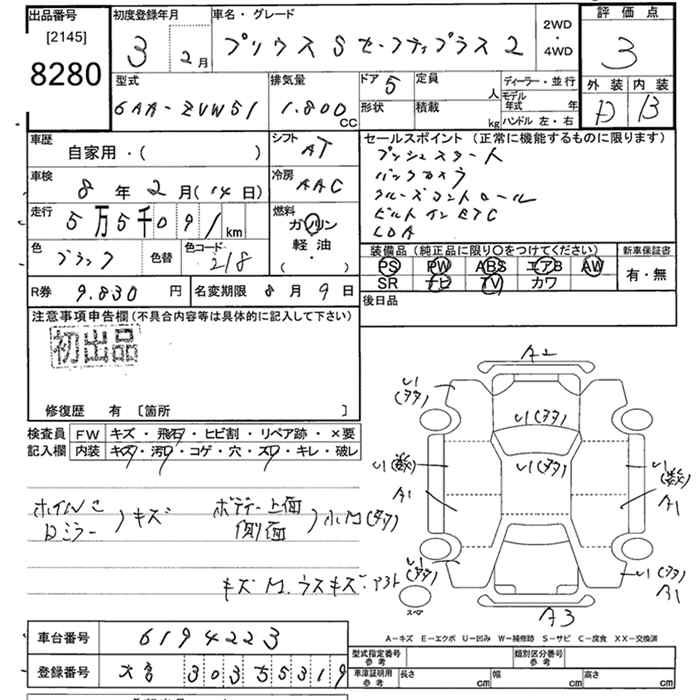 出品番号
[2145]
8280
初度登録年月
3 2月
車名・グレード
プリウス S セーフティプラス 2
2WD
・
4WD
評価点
3
外装 内装
D B
型式
6AA-ZVW51
排気量
1.800 CC
ドア 5
定員 人
形状
積載 kg
ディーラー・並行
モデル年式 年
ハンドル 左・右
車歴
自家用・( )
シフト
AT
車検
8年2月(14日)
冷房
AAC
走行
5万5千091km
燃料
ガソリン
軽油
( ・ )
色
ブラック
色替
色コード
218
セールスポイント (正常に機能するものに限ります)
プッシュスタート
バックカメラ
クルーズコントロール
ビルトインETC
LDA
装備品 (純正品に限り〇をつけてください)
PS PW ABS エアB AW
SR ナビ TV カワ
新車保証書
有・無
R券 9.830 円
名変期限 8月9日
後日品
注意事項申告欄 (不具合内容等は具体的に記入して下さい)
初出品
修復歴 有 [箇所 ]
検査員記入欄
FW キズ・飛石・ヒビ割・リペア跡・×要
内装 キズ・汚レ・コゲ・穴・スレ・キレ・破レ
ホイル
Dミラー
)キズ
ボデー上面
側面
)小凹(タタ)
キズ M. ウスキズ.
A2
い1(タタ)
い1(タタ)
い1(タタ)
い1(タタ)
い1(数)
い1(数)
A1
A1
い1(タタ)
い1(タタ)
A1
A3
スペア
A-キズ E-エクボ U-凹み W-補修跡 S-サビ C-腐食 XX-交換済
車台番号 6194223
登録番号 303 55319
型式指定番号
参考
類別区分番号
参考
車庫証明用
参考
長さ cm
幅 cm
高さ cm